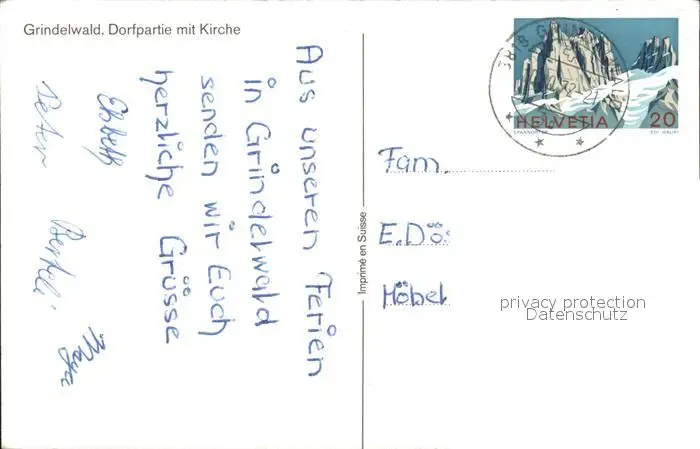 Grindelwald. Dorfpartie mit Kirche
Aus unseren Ferien
in Grindelwald
senden wir Euch
herzliche Grüsse
Elsbeth
Peter
Imprimé en Suisse
HELVETIA 20
SPANNÖRTER
Fam.
E. Dös
Möbel
privacy protection
Datenschutz